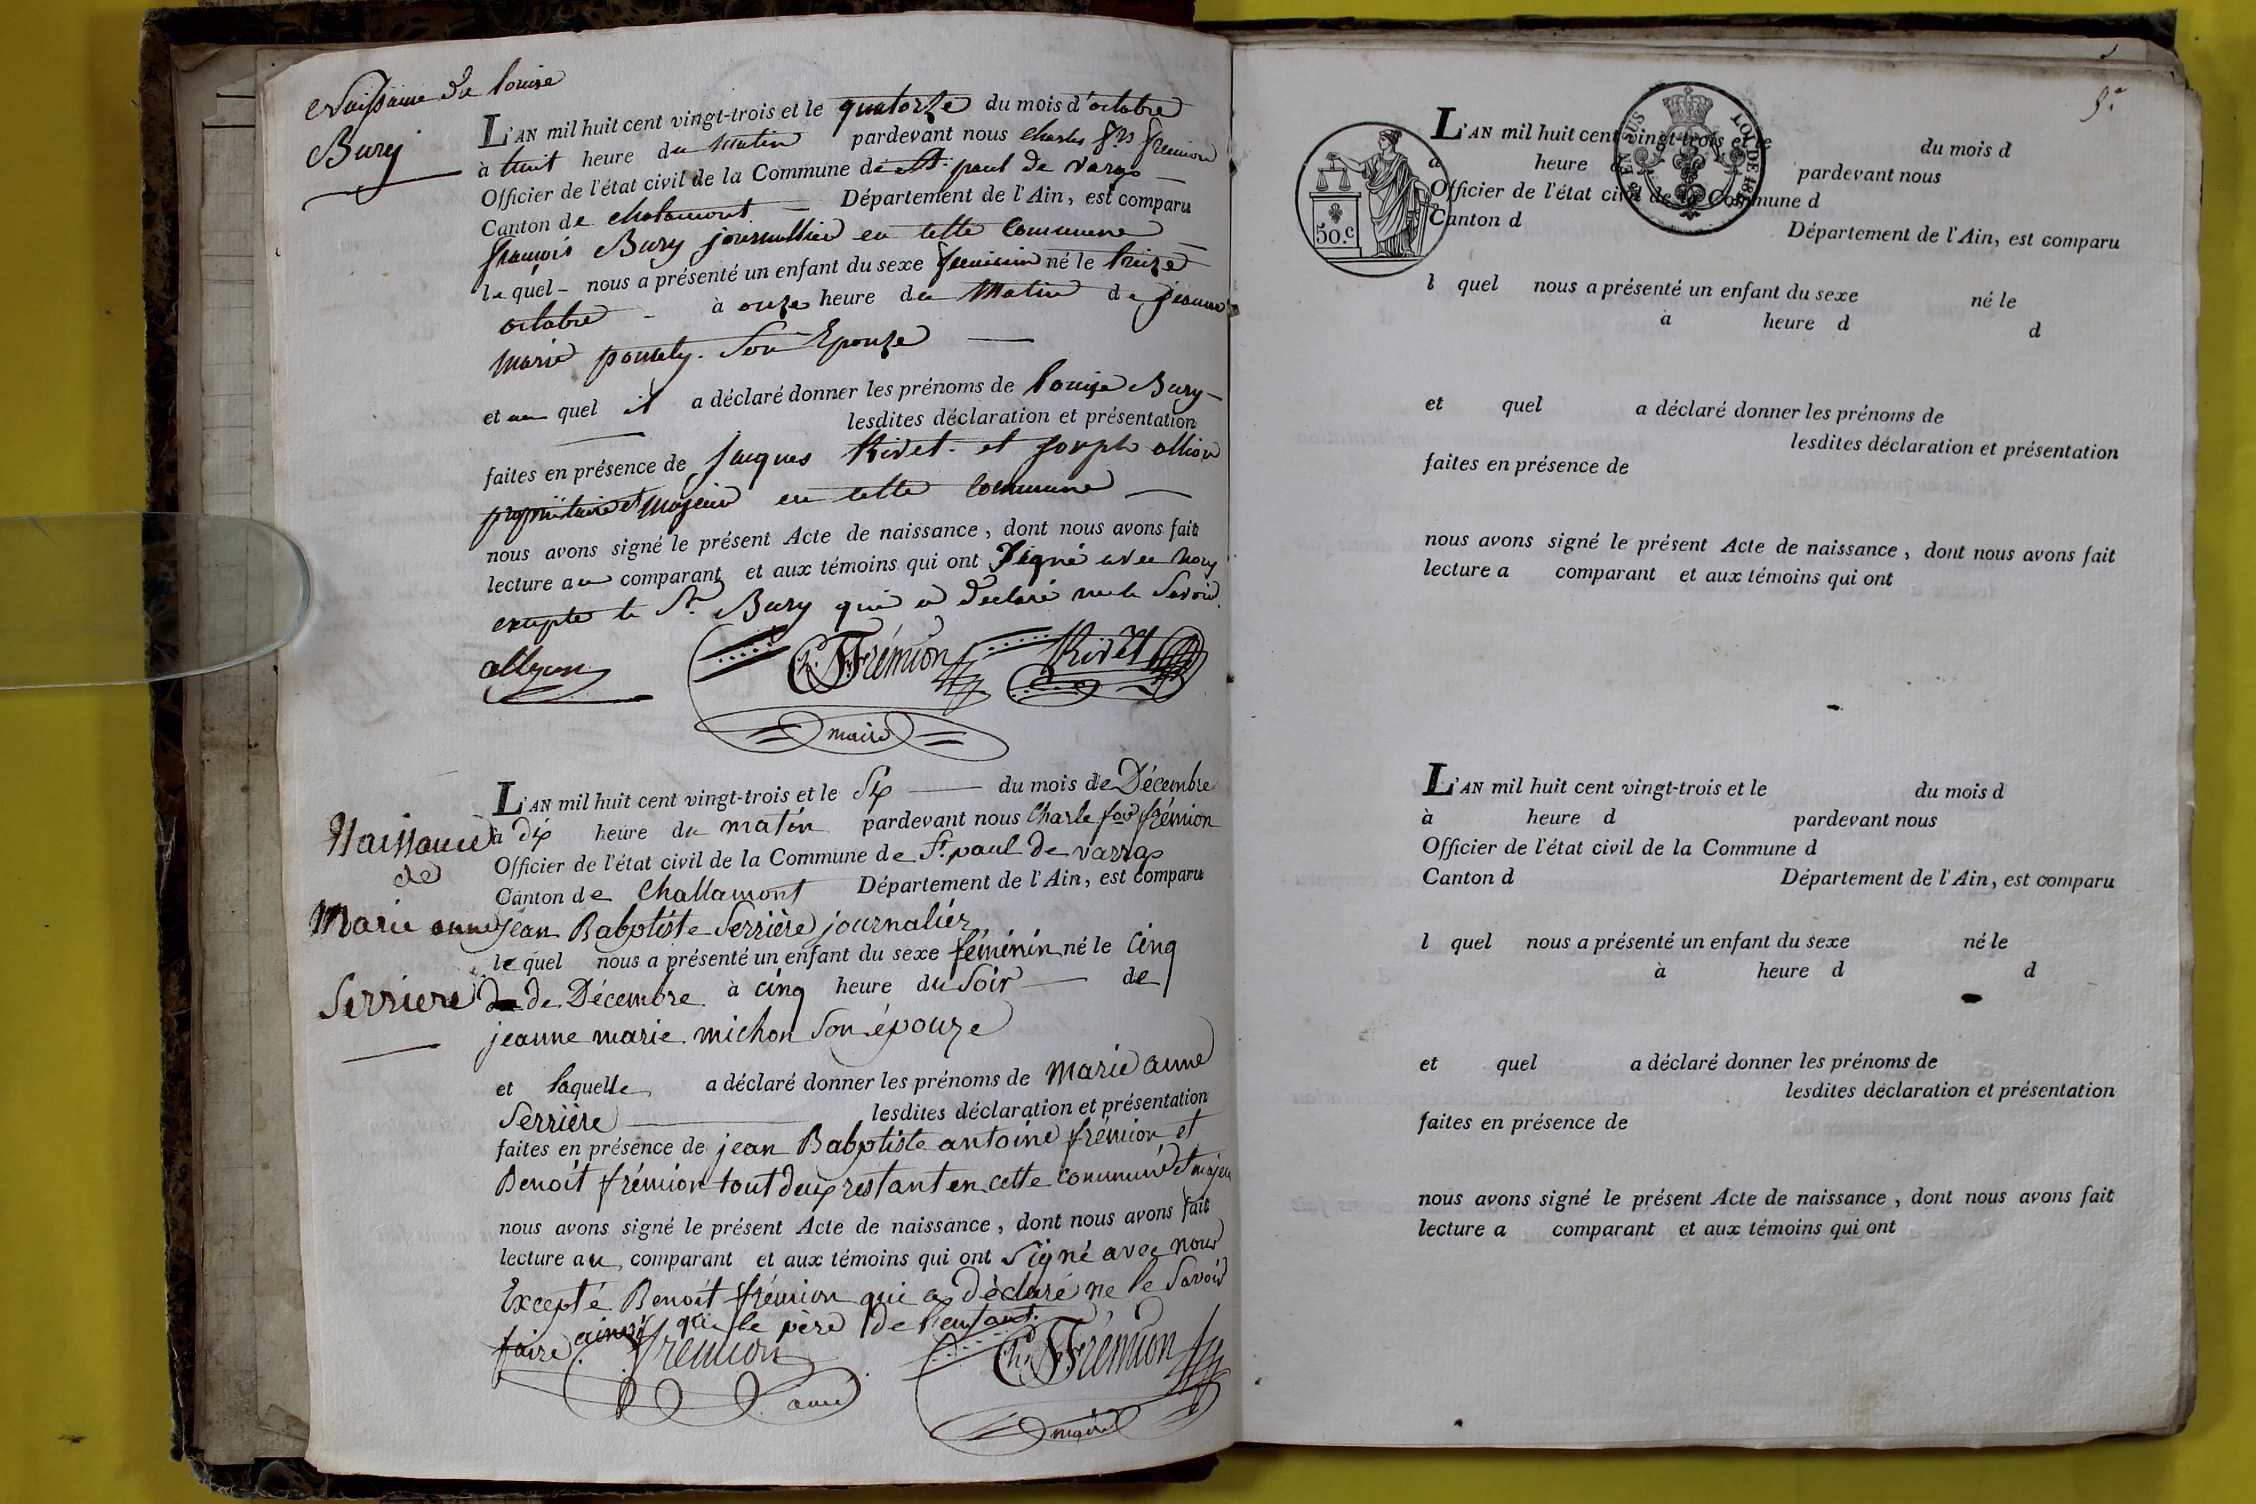 Naissance de louise
Bury
L'AN mil huit cent vingt-trois et le quatorze du mois d'octobre
à huit heure du matin pardevant nous charles frs fremion
Officier de l'état civil de la Commune de St paul de varas
Canton de chalamont Département de l'Ain, est comparu
françois Bury journallier en cette commune
le quel nous a présenté un enfant du sexe feminin né le treize
octobre à onze heure du matin de jeanne
marie son Epouse
et au quel il a déclaré donner les prénoms de louise Bury
lesdites déclaration et présentation
faites en présence de jacques Rivet et joseph allion
propriétaire et majeur en cette commune
nous avons signé le présent Acte de naissance, dont nous avons fait
lecture au comparant et aux témoins qui ont signé avec nous
excepte le Sr Bury qui a declaré ne le savoir
allyon Ch. F. Frémion Rivet
maire
Naissance
de
Marie anne
Serriere
L'AN mil huit cent vingt-trois et le Six du mois de Décembre
à dix heure du matin pardevant nous Charle fois frémion
Officier de l'état civil de la Commune de St paul de varras
Canton de Challamont Département de l'Ain, est comparu
jean Babptiste Serrière journalier
le quel nous a présenté un enfant du sexe féminin né le cinq
de Décembre à cinq heure du Soir de
jeanne marie michon Son épouze
et laquelle a déclaré donner les prénoms de marie anne
Serrière lesdites déclaration et présentation
faites en présence de jean Babptiste antoine frémion et
Benoit frémion tout deux restant en cette commune et majeur
nous avons signé le présent Acte de naissance, dont nous avons fait
lecture au comparant et aux témoins qui ont Signé avec nous
Excepté Benoit frémion qui a déclaré ne le Savoir
faire ainsi que le père de l'enfant.
fremion Ch. F. Frémion
maire
5.e
50.c
EN SUS
LOI DE 18
L'AN mil huit cent vingt-trois et le du mois d
à heure d pardevant nous
Officier de l'état civil de la Commune d
Canton d Département de l'Ain, est comparu
l quel nous a présenté un enfant du sexe né le
à heure d d
et quel a déclaré donner les prénoms de
lesdites déclaration et présentation
faites en présence de
nous avons signé le présent Acte de naissance, dont nous avons fait
lecture a comparant et aux témoins qui ont
L'AN mil huit cent vingt-trois et le du mois d
à heure d pardevant nous
Officier de l'état civil de la Commune d
Canton d Département de l'Ain, est comparu
l quel nous a présenté un enfant du sexe né le
à heure d d
et quel a déclaré donner les prénoms de
lesdites déclaration et présentation
faites en présence de
nous avons signé le présent Acte de naissance, dont nous avons fait
lecture a comparant et aux témoins qui ont